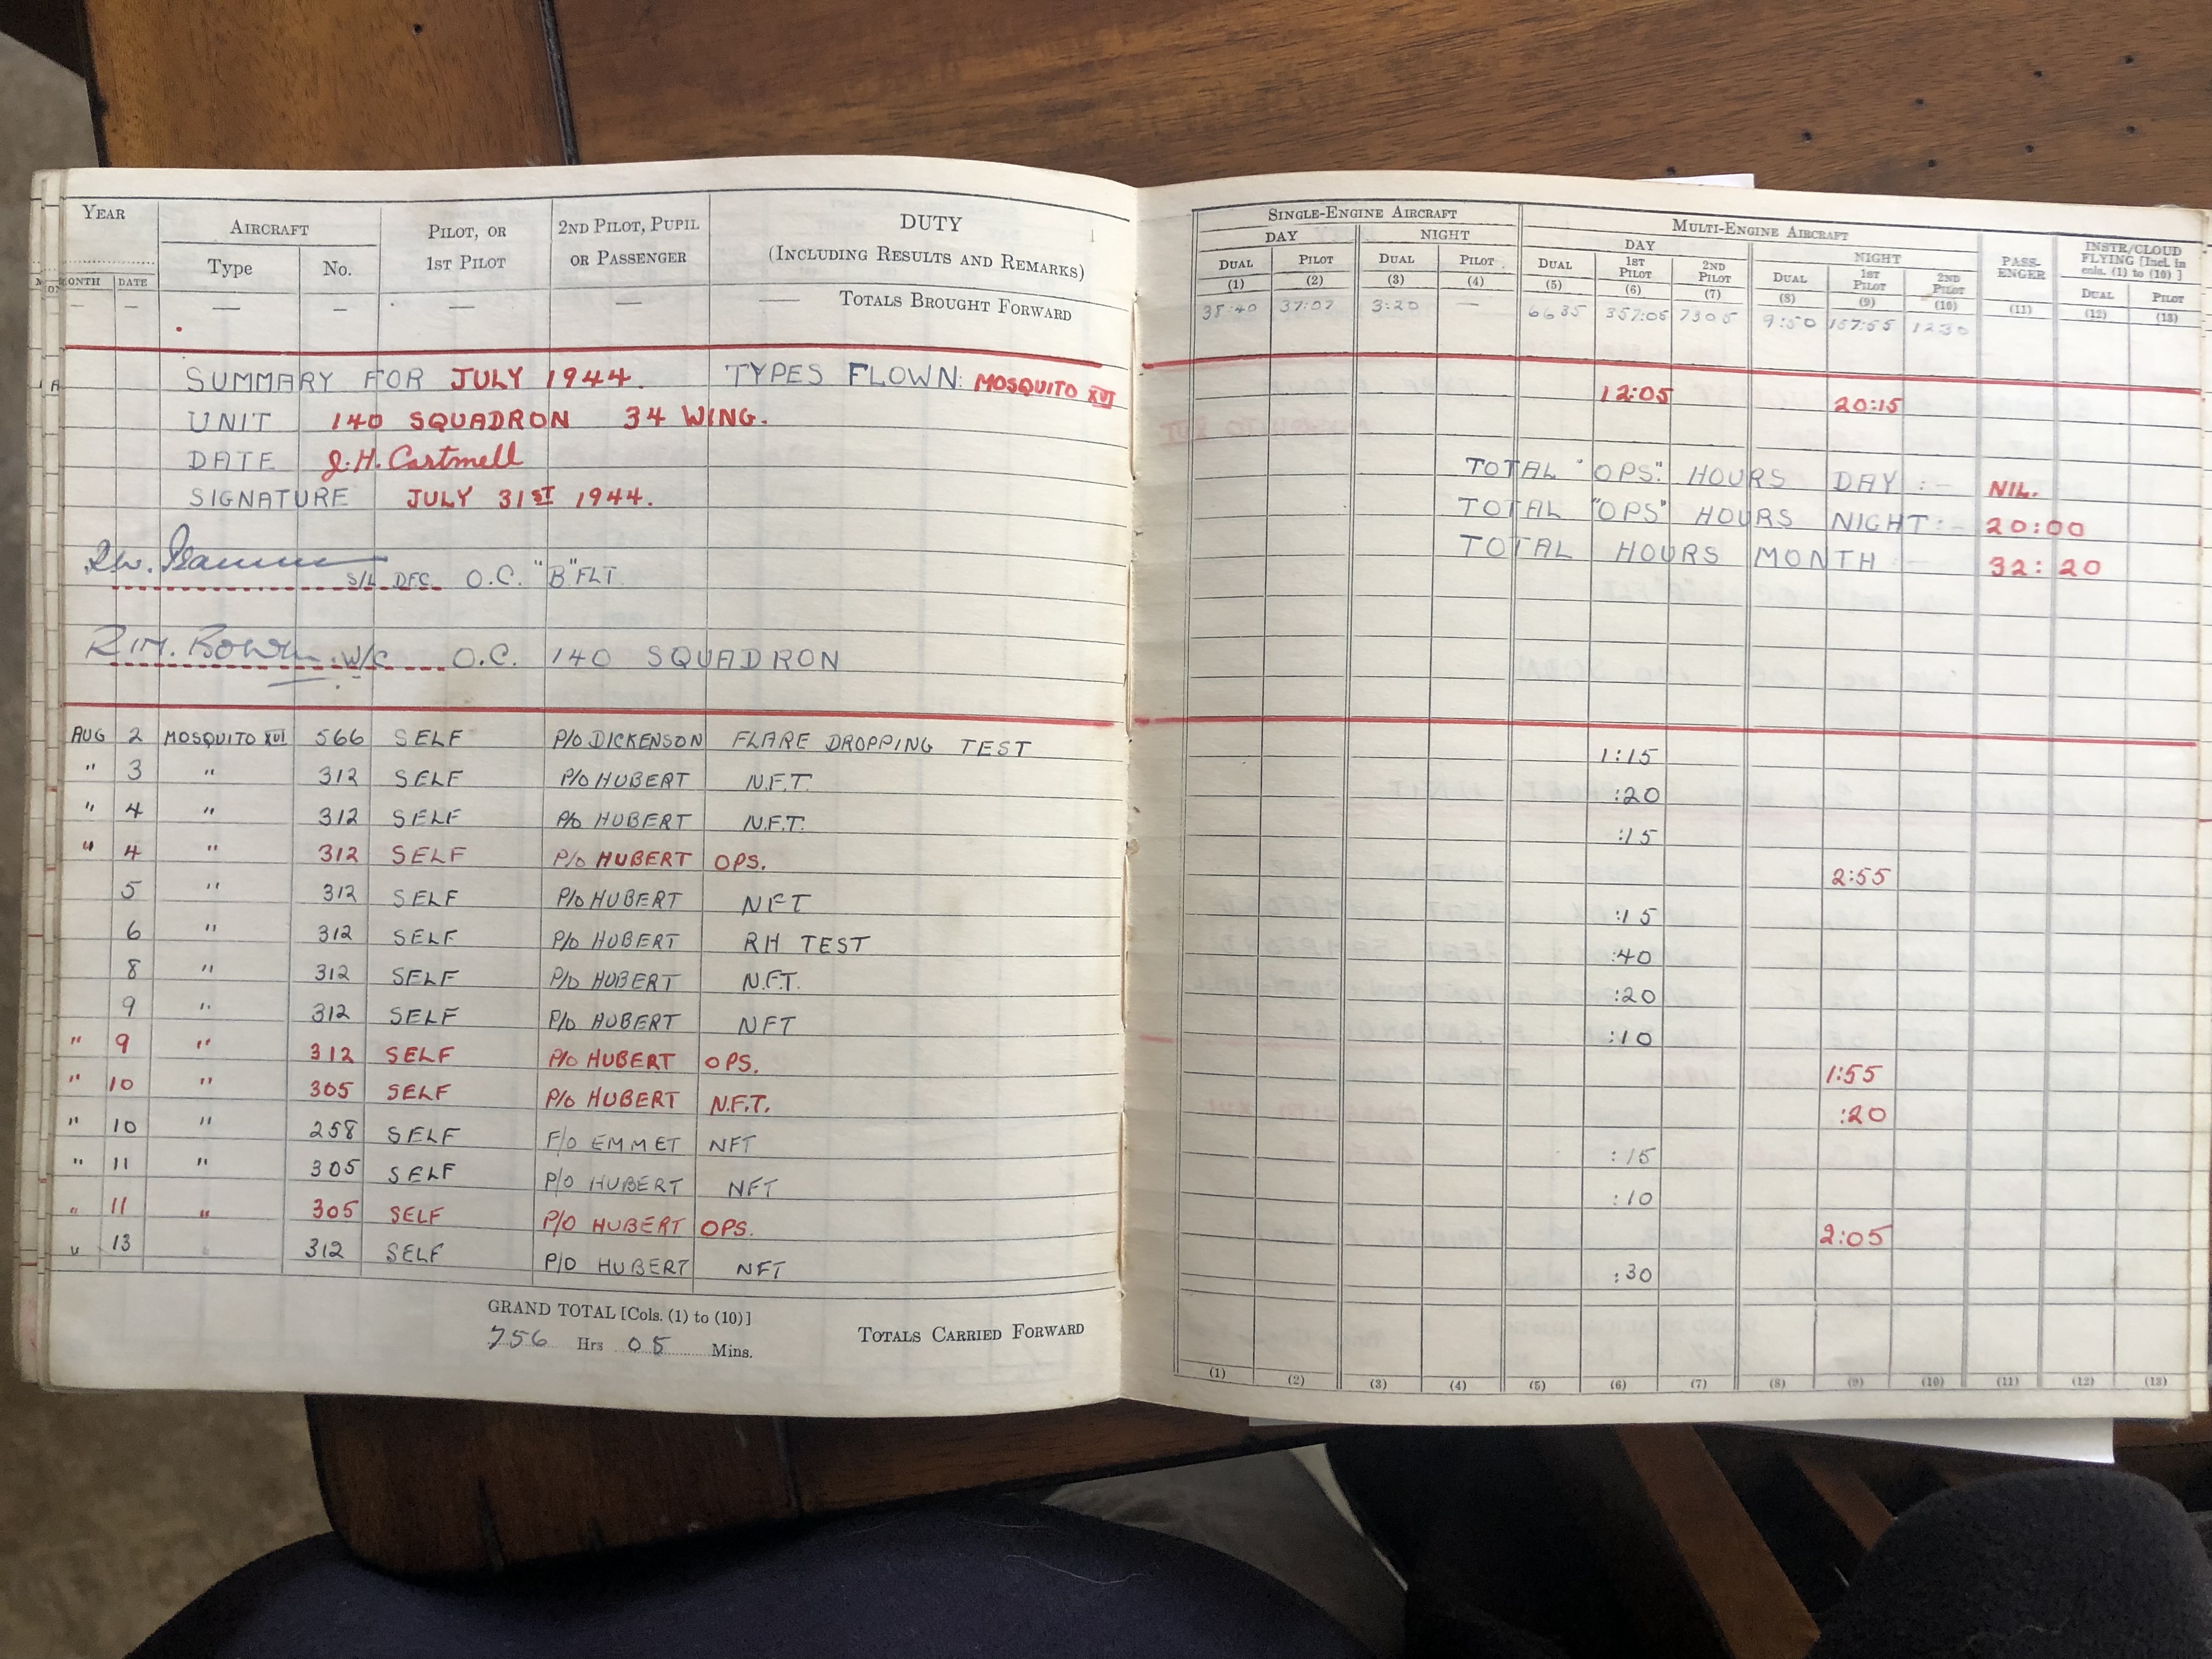 YEAR AIRCRAFT PILOT, OR 1ST PILOT 2ND PILOT, PUPIL OR PASSENGER DUTY (INCLUDING RESULTS AND REMARKS)
MONTH DATE Type No.
— — — — — — — TOTALS BROUGHT FORWARD
SUMMARY FOR JULY 1944. TYPES FLOWN: MOSQUITO XVI
UNIT 140 SQUADRON 34 WING.
DATE J.H. Cartmell
SIGNATURE JULY 31ST 1944.
S/L DFC. O.C. "B" FLT.
R.M. W/C O.C. 140 SQUADRON
AUG 2 MOSQUITO XVI 566 SELF P/O DICKENSON FLARE DROPPING TEST
" 3 " 312 SELF P/O HUBERT N.F.T.
" 4 " 312 SELF P/O HUBERT N.F.T.
" 4 " 312 SELF P/O HUBERT OPS.
5 " 312 SELF P/O HUBERT NFT
6 " 312 SELF P/O HUBERT RH TEST
8 " 312 SELF P/O HUBERT N.F.T.
9 " 312 SELF P/O HUBERT NFT
" 9 " 312 SELF P/O HUBERT OPS.
" 10 " 305 SELF P/O HUBERT N.F.T.
" 10 " 258 SELF F/O EMMET NFT
" 11 " 305 SELF P/O HUBERT NFT
" 11 " 305 SELF P/O HUBERT OPS.
" 13 " 312 SELF P/O HUBERT NFT
GRAND TOTAL [Cols. (1) to (10)]
756 Hrs 05 Mins.
TOTALS CARRIED FORWARD
SINGLE-ENGINE AIRCRAFT MULTI-ENGINE AIRCRAFT PASSENGER INSTR/CLOUD FLYING [Incl. in cols. (1) to (10)]
DAY NIGHT DAY NIGHT
DUAL PILOT DUAL PILOT DUAL 1ST PILOT 2ND PILOT DUAL 1ST PILOT 2ND PILOT DUAL PILOT
(1) (2) (3) (4) (5) (6) (7) (8) (9) (10) (11) (12) (13)
38:40 37:07 3:20 — 66 35 357:05 73 05 9:50 157:55 12 30
12:05 20:15
TOTAL "OPS". HOURS DAY :- NIL.
TOTAL "OPS" HOURS NIGHT :- 20:00
TOTAL HOURS MONTH :- 32:20
1:15
:20
:15
2:55
:15
:40
:20
:10
1:55
:20
:15
:10
2:05
:30
(1) (2) (3) (4) (5) (6) (7) (8) (9) (10) (11) (12) (13)